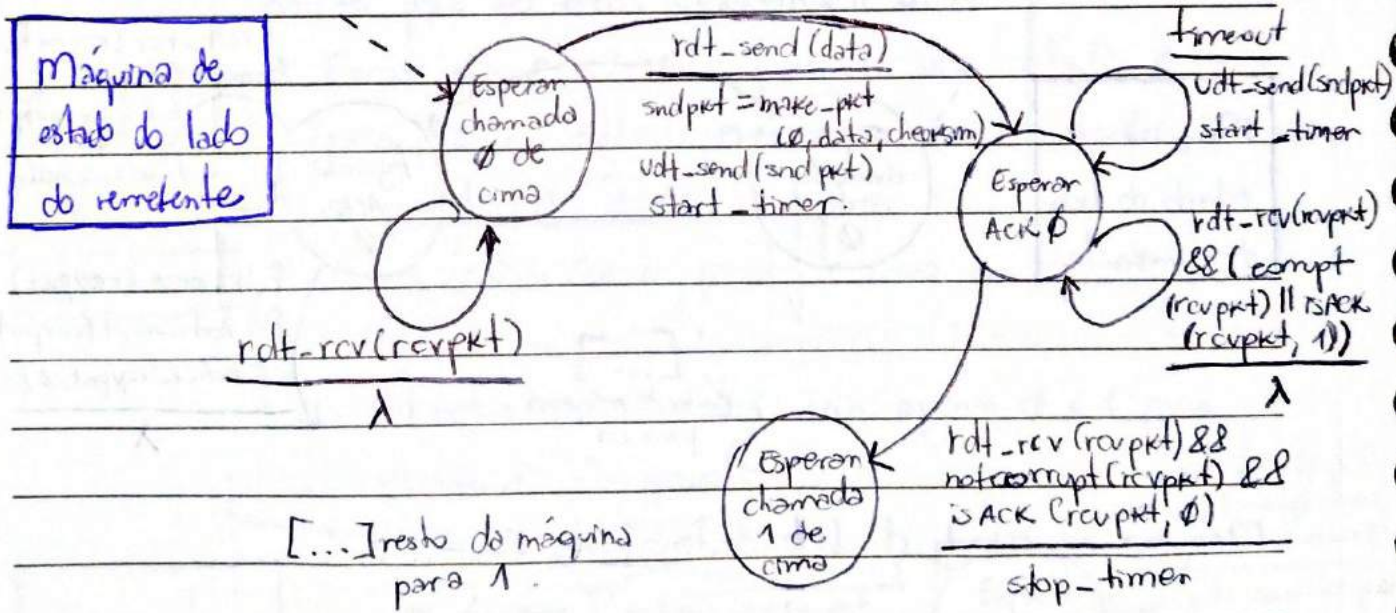 Máquina de
estado do lado
do remetente
Esperar
chamada
Ø de
cima
rdt_send(data)
sndpkt = make_pkt
(Ø, data, checksm)
udt_send(sndpkt)
start_timer.
timeout
udt_send(sndpkt)
start_timer
Esperar
ACK Ø
rdt_rcv(rcvpkt)
&& ( corrupt
(rcvpkt) || isACK
(rcvpkt, 1))
λ
rdt_rcv(rcvpkt)
λ
Esperar
chamada
1 de
cima
rdt_rcv(rcvpkt) &&
notcorrupt(rcvpkt) &&
isACK (rcvpkt, Ø)
stop_timer
[...] resto da máquina
para 1.